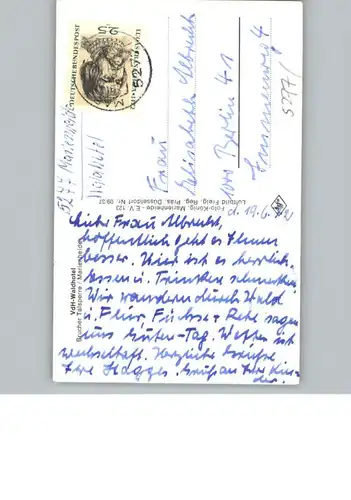 DEUTSCHE BUNDESPOST
LUCAS CRANACH
52
5277 Marienheide
Frau
Elisabeth Albrecht
1000 Berlin 41
5277/
VdH-Waldhotel
Brucher Talsperre / Marienheide
Foto-König, Marienheide - E.V. 123
Luftbild Freig. Reg. Präs. Düsseldorf Nr. 09 37
d. 19.6.
Liebe Frau Albrecht,
hoffentlich geht es Ihnen
besser. Hier ist es herrlich.
Essen u. Trinken schmecken
Wir wandern durch Wald
u. Flur Füchse + Rehe sagen
uns Guten-Tag. Wetter ist
wechselhaft. Herzliche Grüße
Ihre Hagges. Gruß an Ihre Kin-
der.